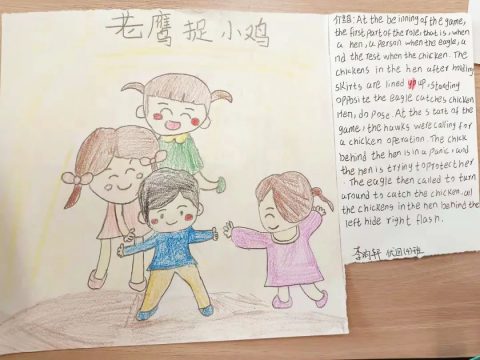 老鹰捉小鸡
介绍: At the be inning of the game,
the first part of the role, that is, when
a hen, a person when the eagle, a
nd the rest when the chicken. The
chickens in the hen after holding
skirts are lined up up, standing
opposite the eagle catches chicken
Hen, do pose. At the start of the
game, the hawks were calling for
a chicken operation. The chick
behind the hen is in a panic, and
the hen is trying to protect her
. The eagle then called to turn
around to catch the chicken, and
the chickens in the hen behind the
left hide right flash.
李 轩 (4)班